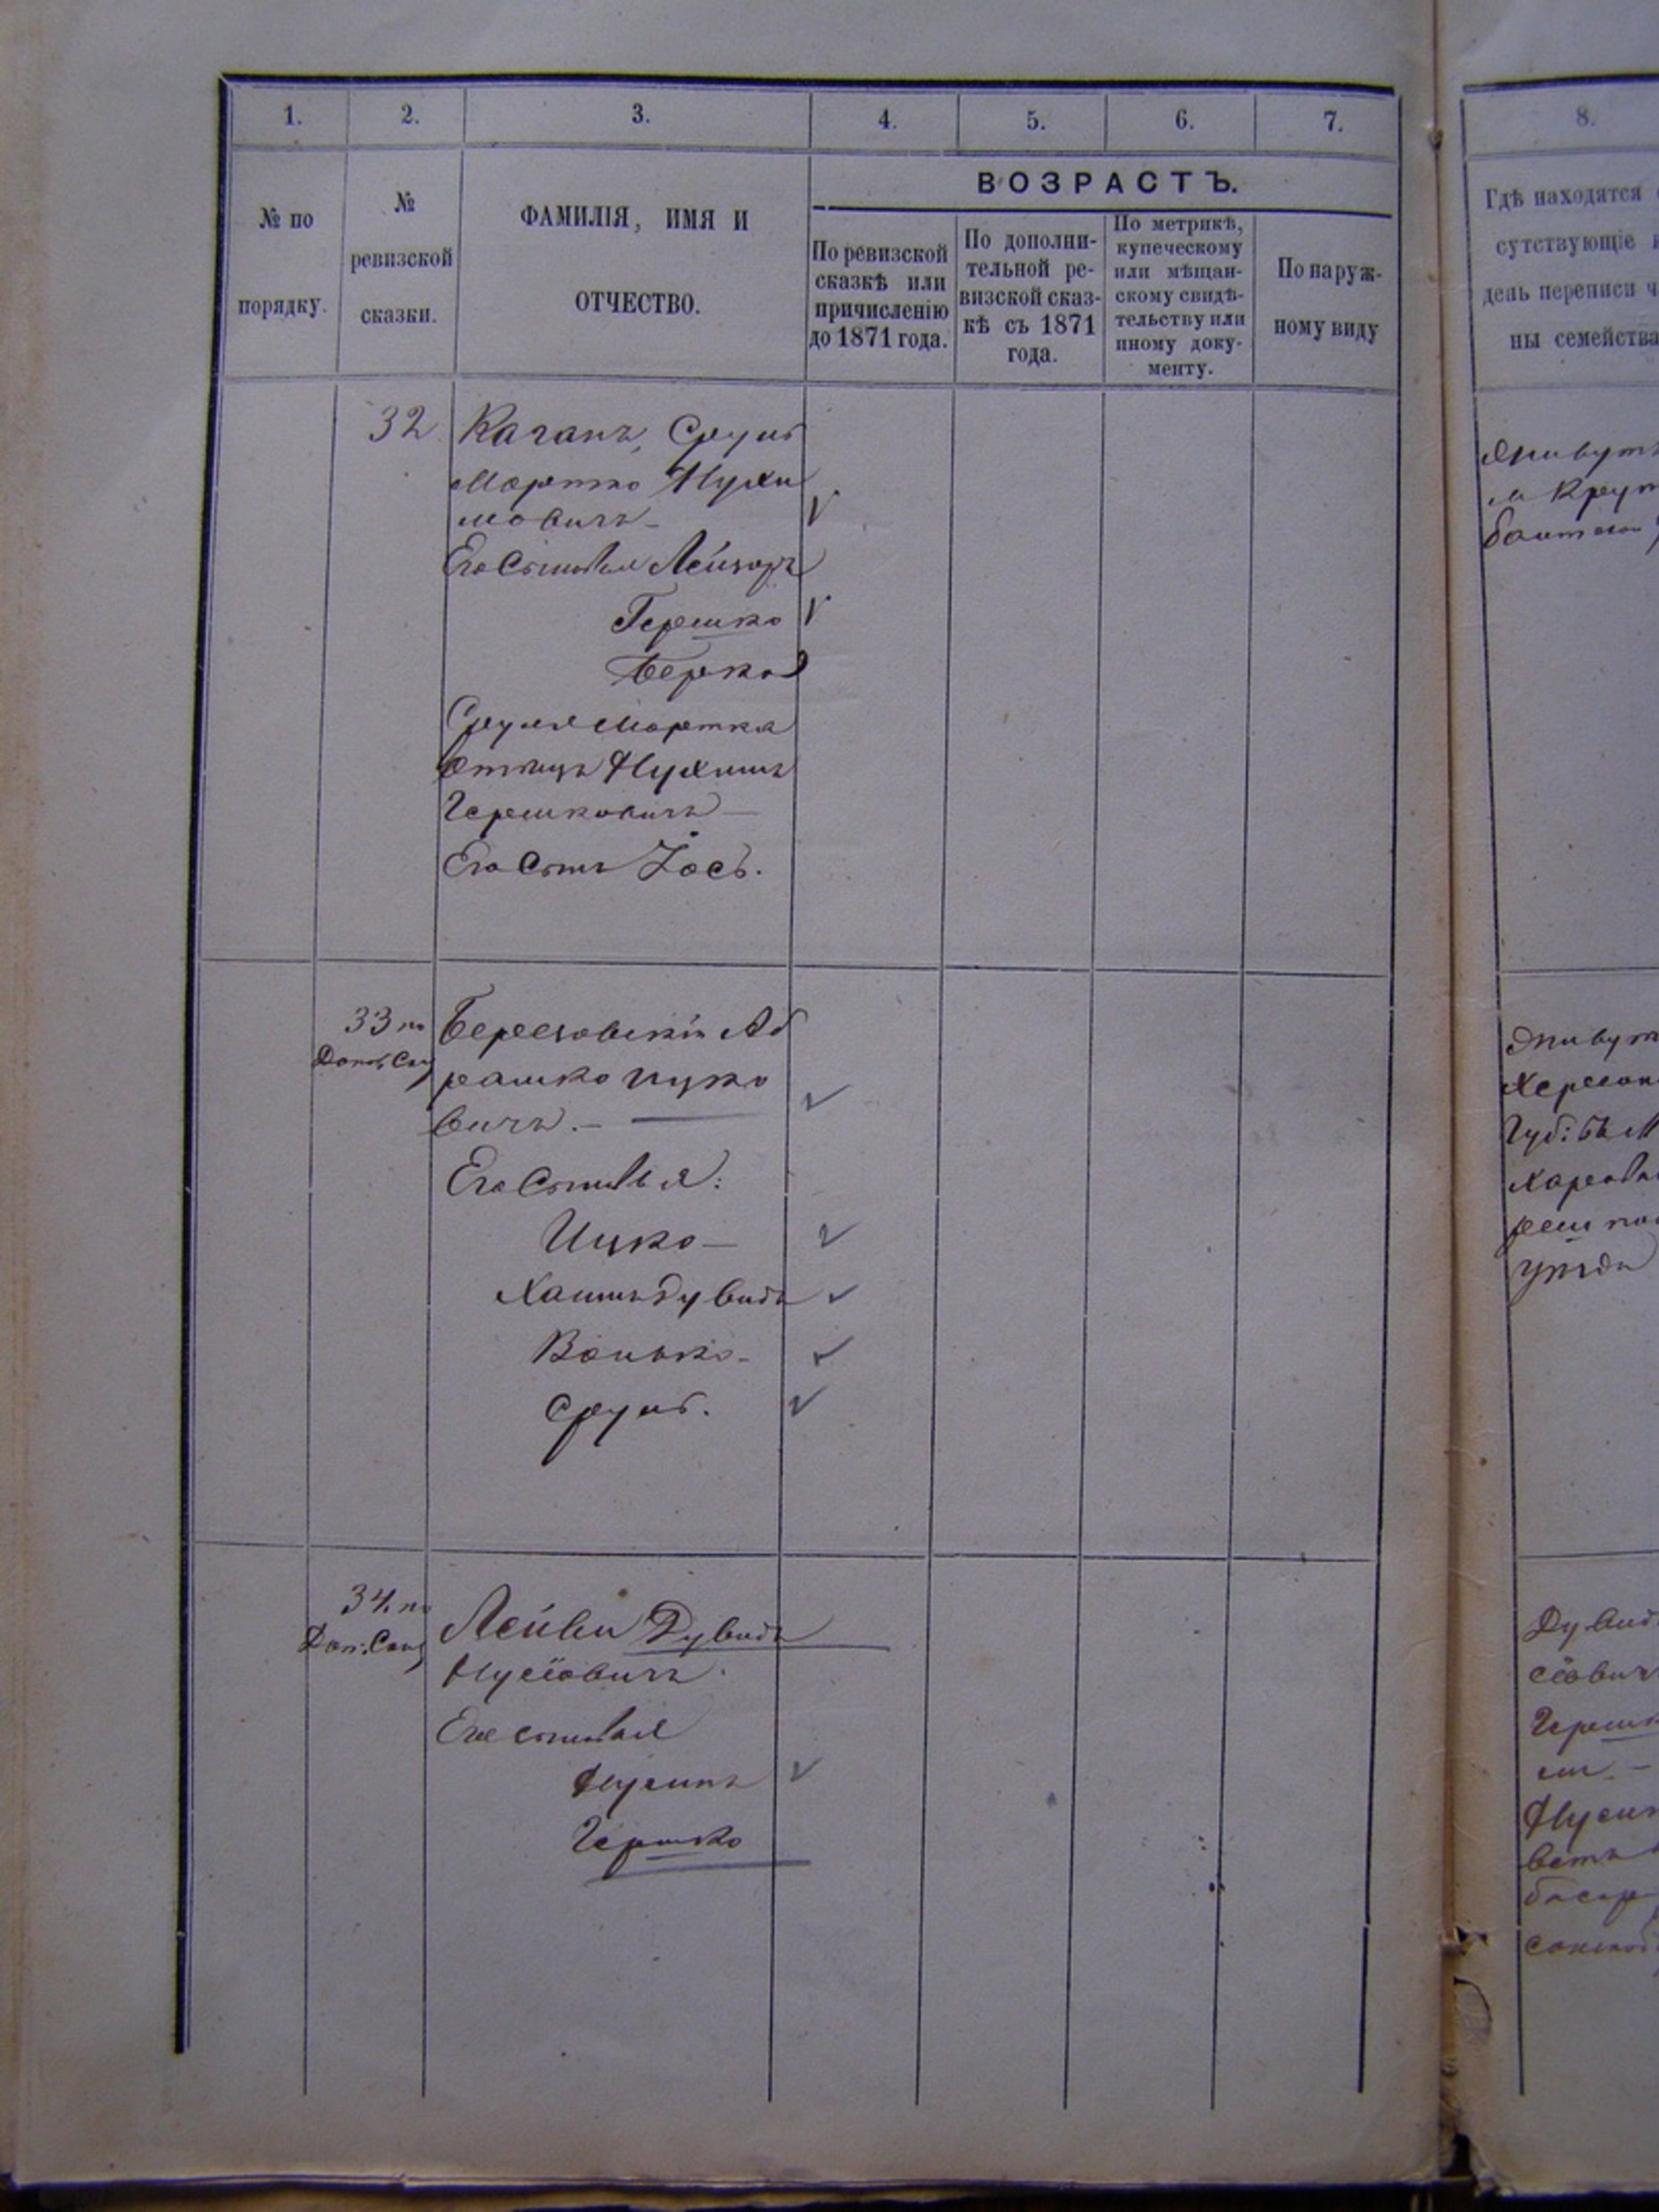 1.
2.
3.
4.
5.
6.
7.
8.
№ по
порядку.
№
ревизской
сказки.
ФАМИЛІЯ, ИМЯ И
ОТЧЕСТВО.
ВОЗРАСТЪ.
По ревизской
сказкѣ или
причисленію
до 1871 года.
По дополни-
тельной ре-
визской сказ-
кѣ съ 1871
года.
По метрикѣ,
купеческому
или мѣщан-
скому свидѣ-
тельству или
иному доку-
менту.
По наруж-
ному виду
Гдѣ находятся
сутствующіе
день переписи
ны семейства
32
Каганъ, Сруль
Мортко Нухи
мовичъ
Его Сыновья Лейзоръ
Гершко
Берко
Сруля Мортка
отецъ Нухимъ
Гершковичъ —
Его Сынъ Іось.
33 по
Доп. Ска
Березовскій Аб
рамко Ицко
вичъ. —
Его Сыновья:
Ицко —
Хаимъ Дувидъ
Волько -
Сруль.
34 по
Доп. Ска
Лейви Дувидъ
Нусіовичъ.
Его сыновья
Нусинъ
Гершко
Живутъ
Живут
Херсон
Губ:
Дувид
сіович
Гершк
Нусин